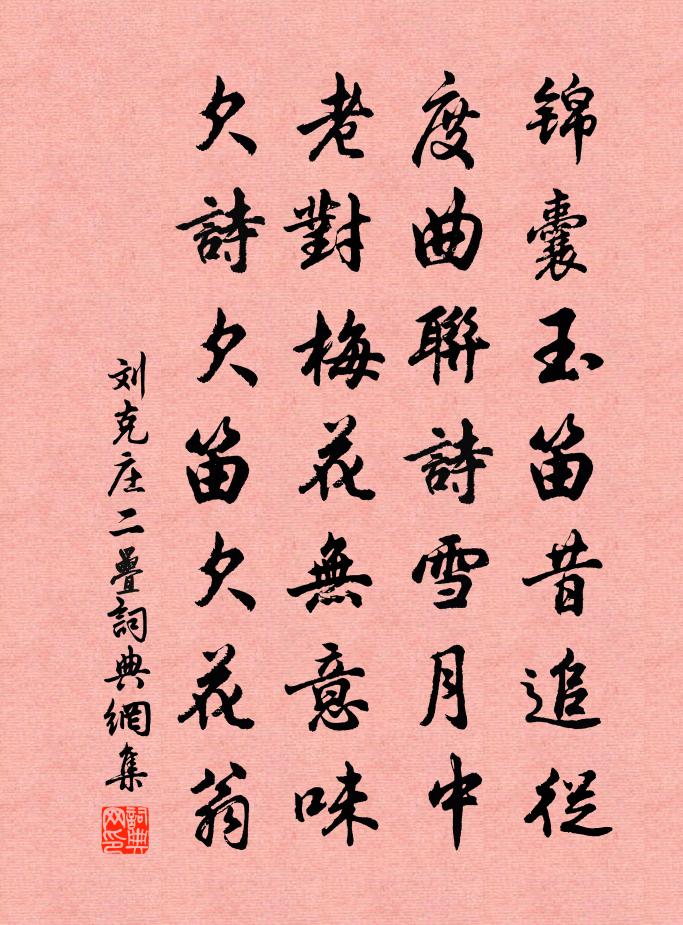 锦囊玉笛昔追从
度曲聯詩雪月中
老對梅花無意味
欠詩欠笛欠花翁
刘克庄二疊詞典網集
詞典网印